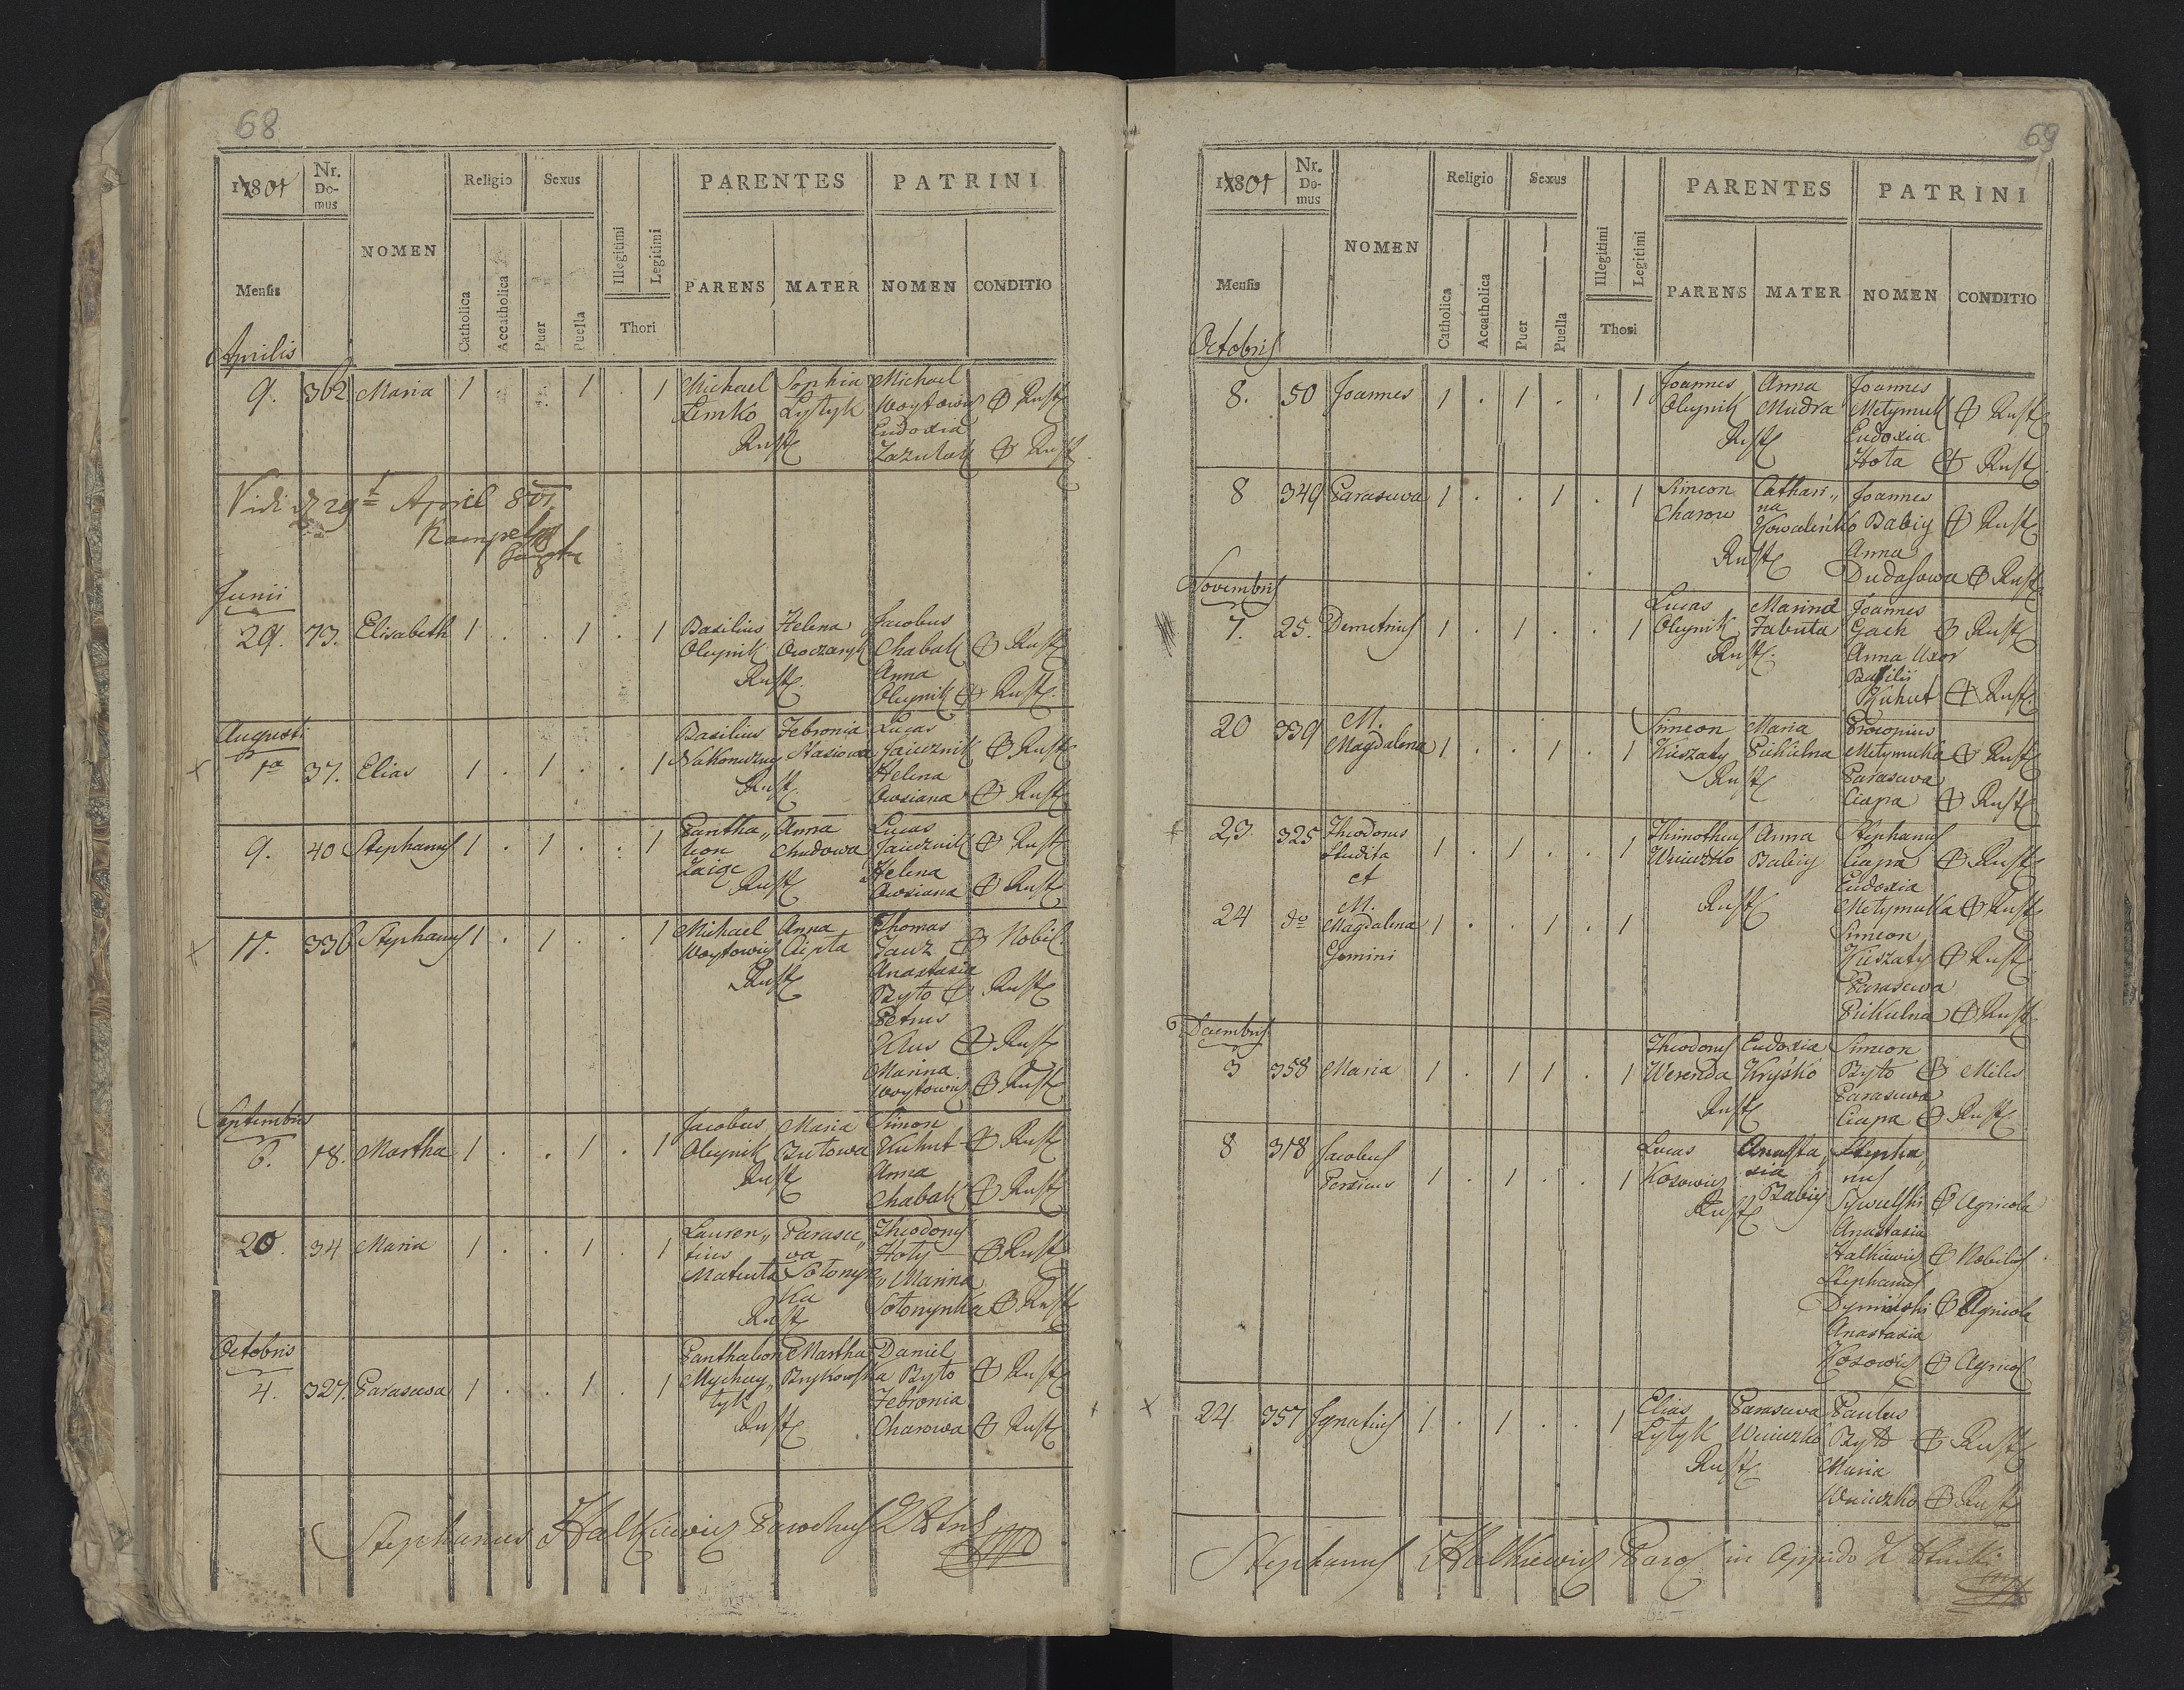 68
1801
Nr. Do-mus
NOMEN
Religio
Sexus
PARENTES
PATRINI
Mensis
Catholica
Accatholica
Puer
Puella
Illegitimi
Legitimi
Thori
PARENS
MATER
NOMEN
CONDITIO
Aprilis
9. 362 Maria 1 1 . 1 Michael Sophia Michael
Lemko Lytyk Woytowicz Rust
Rust Eudoxia
Zazulak Rust
Vidi d 29t April 801
Junii
29. 73. Elisabeth 1 . . 1 . 1 Basilius Helena Jacobus
Oleynik Chabak Rust
Rust. Anna
Oleynik Rust.
Augusti
1a 37. Elias 1 . 1 . . 1 Basilius Febronia Lucas
Nasiowa Jaiecznik Rust
Rust. Helena
Owsiana Rust
9. 40 Stephanus 1 . 1 . . 1 Pantha„ Anna Lucas
leon Chudowa Jaiecznik Rust
Zaige Rust Helena
Owsiana Rust
17. 336 Stephanus 1 . 1 . . 1 Michael Anna Thomas
Woytowicz Cipta Nobil.
Rust Anastasia
Byto Rust
Petrus
Rust
Marina
Woytowicz Rust
Septembris
6. 18. Martha 1 . . 1 . 1 Jacobus Maria Simon
Oleynik Butowa Kuhut Rust
Rust Anna
Chabak Rust
20. 34 Maria 1 . . 1 . 1 Lauren„ Parasce„ Theodorus
tius va Hoty Rust
Matuta Sotonyn„ Marina
ka Sotonynka Rust
Rust
Octobris
4. 327. Parascewa 1 . . 1 . 1 Panthaleon Martha Daniel
Mychay„ Brykowska Byto Rust
tyk Febronia
Rust Charowa Rust
Stephanus Halkiewicz Parochus
69
1801
Nr. Do-mus
NOMEN
Religio
Sexus
PARENTES
PATRINI
Mensis
Catholica
Accatholica
Puer
Puella
Illegitimi
Legitimi
Thori
PARENS
MATER
NOMEN
CONDITIO
Octobris
8. 50 Joannes 1 . 1 . . 1 Joannes Anna Joannes
Oleynik Mudra Metymuk Rust
Rust Eudoxia
Hota Rust.
8 349 Parascewa 1 . . 1 . 1 Simeon Cathari„ Joannes
Charow na
Kowalenko Babiy Rust
Rust Anna
Dudasowa Rust
Novembris
7. 25. Demetrius 1 . 1 . . 1 Lucas Marina Joannes
Oleynik Zabuta Gach Rust
Rust. Anna Uxor
Basilii
Kuhut Rust
20 339 M. Simeon Maria Procopius
Magdalena 1 . . 1 . 1 Kuszaty Pickulna Metymuka Rust
Rust Parascewa
Ciapa Rust
23 325 Theodorus Thimotheus Anna Stephanus
Studita 1 . 1 . . 1 Wniuczko Babiy Ciapa Rust
et Eudoxia
24 do M. Rust Metymukka Rust
Magdalena 1 . . 1 . 1 Simeon
Gemini Kuszaty Rust
Parascewa
Pickulna Rust
Decembris
3 358 Maria 1 . 1 1 . 1 Theodorus Eudoxia Simeon
Werenda Hryśko Byto Miles
Rust Parascewa
Ciapa Rust
8 318 Jacobus Lucas Anasta„ Stepha„
Persicus 1 . 1 . . 1 Kosowicz sia nus
Rust Babiy Sywulski Agricola
Anastasia
Halkiewicz Nobilis
Stephanus
Agricola
Anastasia
Kosowicz Agricol
24 357 Ignatius 1 . 1 . . 1 Elias Parascewa Paulus
Lytyk Wniuczko Byto Rust
Rust Maria
Wniuczko Rust
Stephanus Halkiewicz Paroc in oppido